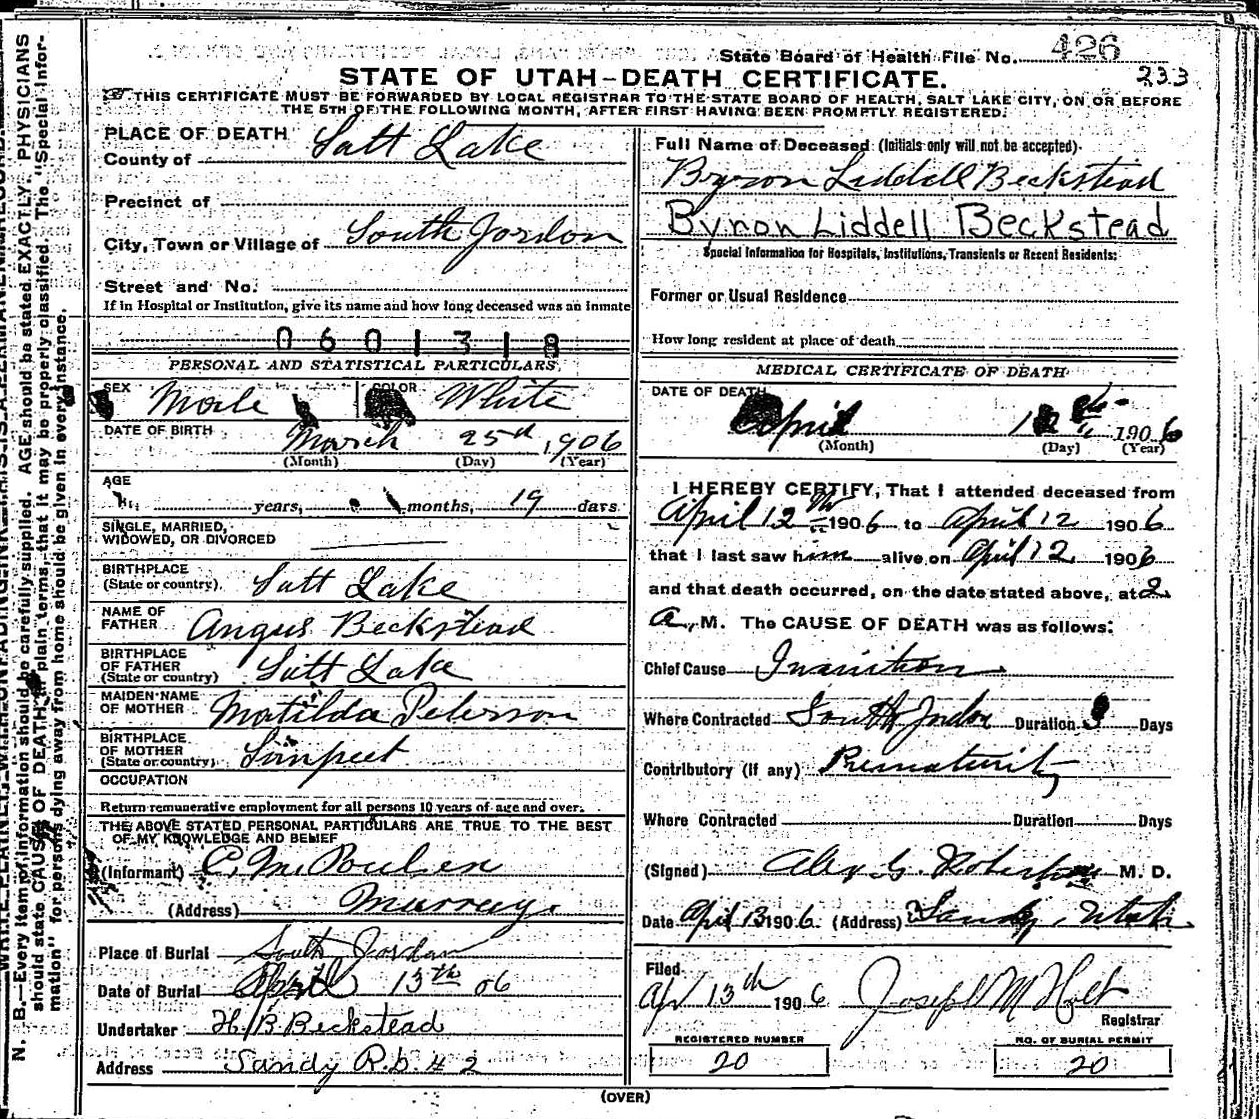 State Board of Health File No. 426
233
STATE OF UTAH-DEATH CERTIFICATE.
THIS CERTIFICATE MUST BE FORWARDED BY LOCAL REGISTRAR TO THE STATE BOARD OF HEALTH, SALT LAKE CITY, ON OR BEFORE
THE 5TH OF THE FOLLOWING MONTH, AFTER FIRST HAVING BEEN PROMPTLY REGISTERED.
PLACE OF DEATH
County of Salt Lake
Precinct of
City, Town or Village of South Jordon
Street and No.
If in Hospital or Institution, give its name and how long deceased was an inmate
0601318
PERSONAL AND STATISTICAL PARTICULARS
SEX Male COLOR White
DATE OF BIRTH March 25th, 1906
(Month) (Day) (Year)
AGE
years, months, 19 days
SINGLE, MARRIED,
WIDOWED, OR DIVORCED
BIRTHPLACE
(State or country) Salt Lake
NAME OF
FATHER Angus Beckstead
BIRTHPLACE
OF FATHER
(State or country) Salt Lake
MAIDEN NAME
OF MOTHER Matilda Peterson
BIRTHPLACE
OF MOTHER
(State or country) Sanpeet
OCCUPATION
Return remunerative employment for all persons 10 years of age and over.
THE ABOVE STATED PERSONAL PARTICULARS ARE TRUE TO THE BEST
OF MY KNOWLEDGE AND BELIEF
(Informant) C. M. Poulsen
(Address) Murray.
Place of Burial South Jordan
Date of Burial April 13th 06
Undertaker H. B. Beckstead
Address Sandy R.D. # 2
Full Name of Deceased (Initials only will not be accepted).
Byron Liddell Beckstead
Bynon Liddell Beckstead
Special Information for Hospitals, Institutions, Transients or Recent Residents:
Former or Usual Residence
How long resident at place of death
MEDICAL CERTIFICATE OF DEATH
DATE OF DEATH
April 12th 1906
(Month) (Day) (Year)
I HEREBY CERTIFY, That I attended deceased from
April 12th 1906 to April 12 1906
that I last saw him alive on April 12 1906
and that death occurred, on the date stated above, at 2
A. M. The CAUSE OF DEATH was as follows:
Chief Cause Inanition
Where Contracted South Jordan Duration Days
Contributory (if any) Prematurity
Where Contracted Duration Days
(Signed) Alex G. Robertson M. D.
Date April 13 1906. (Address) Sandy, Utah
Filed
Apr 13th 1906 Joseph M Holt
Registrar
REGISTERED NUMBER
20
NO. OF BURIAL PERMIT
20
(OVER)
N. B.—Every item of information should be carefully supplied. AGE should be stated EXACTLY. PHYSICIANS
should state CAUSE OF DEATH in plain terms, that it may be properly classified. The "Special Infor-
mation" for persons dying away from home should be given in every instance.